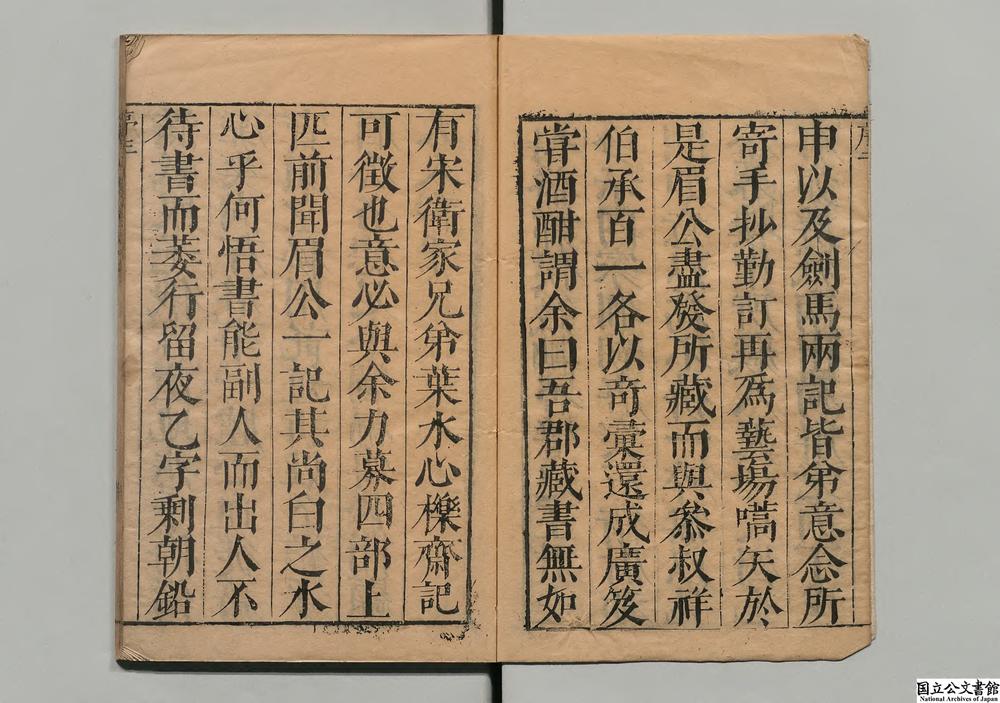 申以及劍馬兩記皆弟意念所
寄手抄勤訂再爲藝場嚆矢於
是眉公盡發所藏而與叅叔祥
伯承百一各以竒彙還成廣笈
甞酒酣謂余曰吾郡藏書無如
有宋衛家兄弟葉水心櫟齋記
可徵也意必與余力募四部上
匹前聞眉公一記其尚白之水
心乎何悟書能副人而出人不
待書而萎行留夜乙字剩朝鉛
国立公文書館
National Archives of Japan